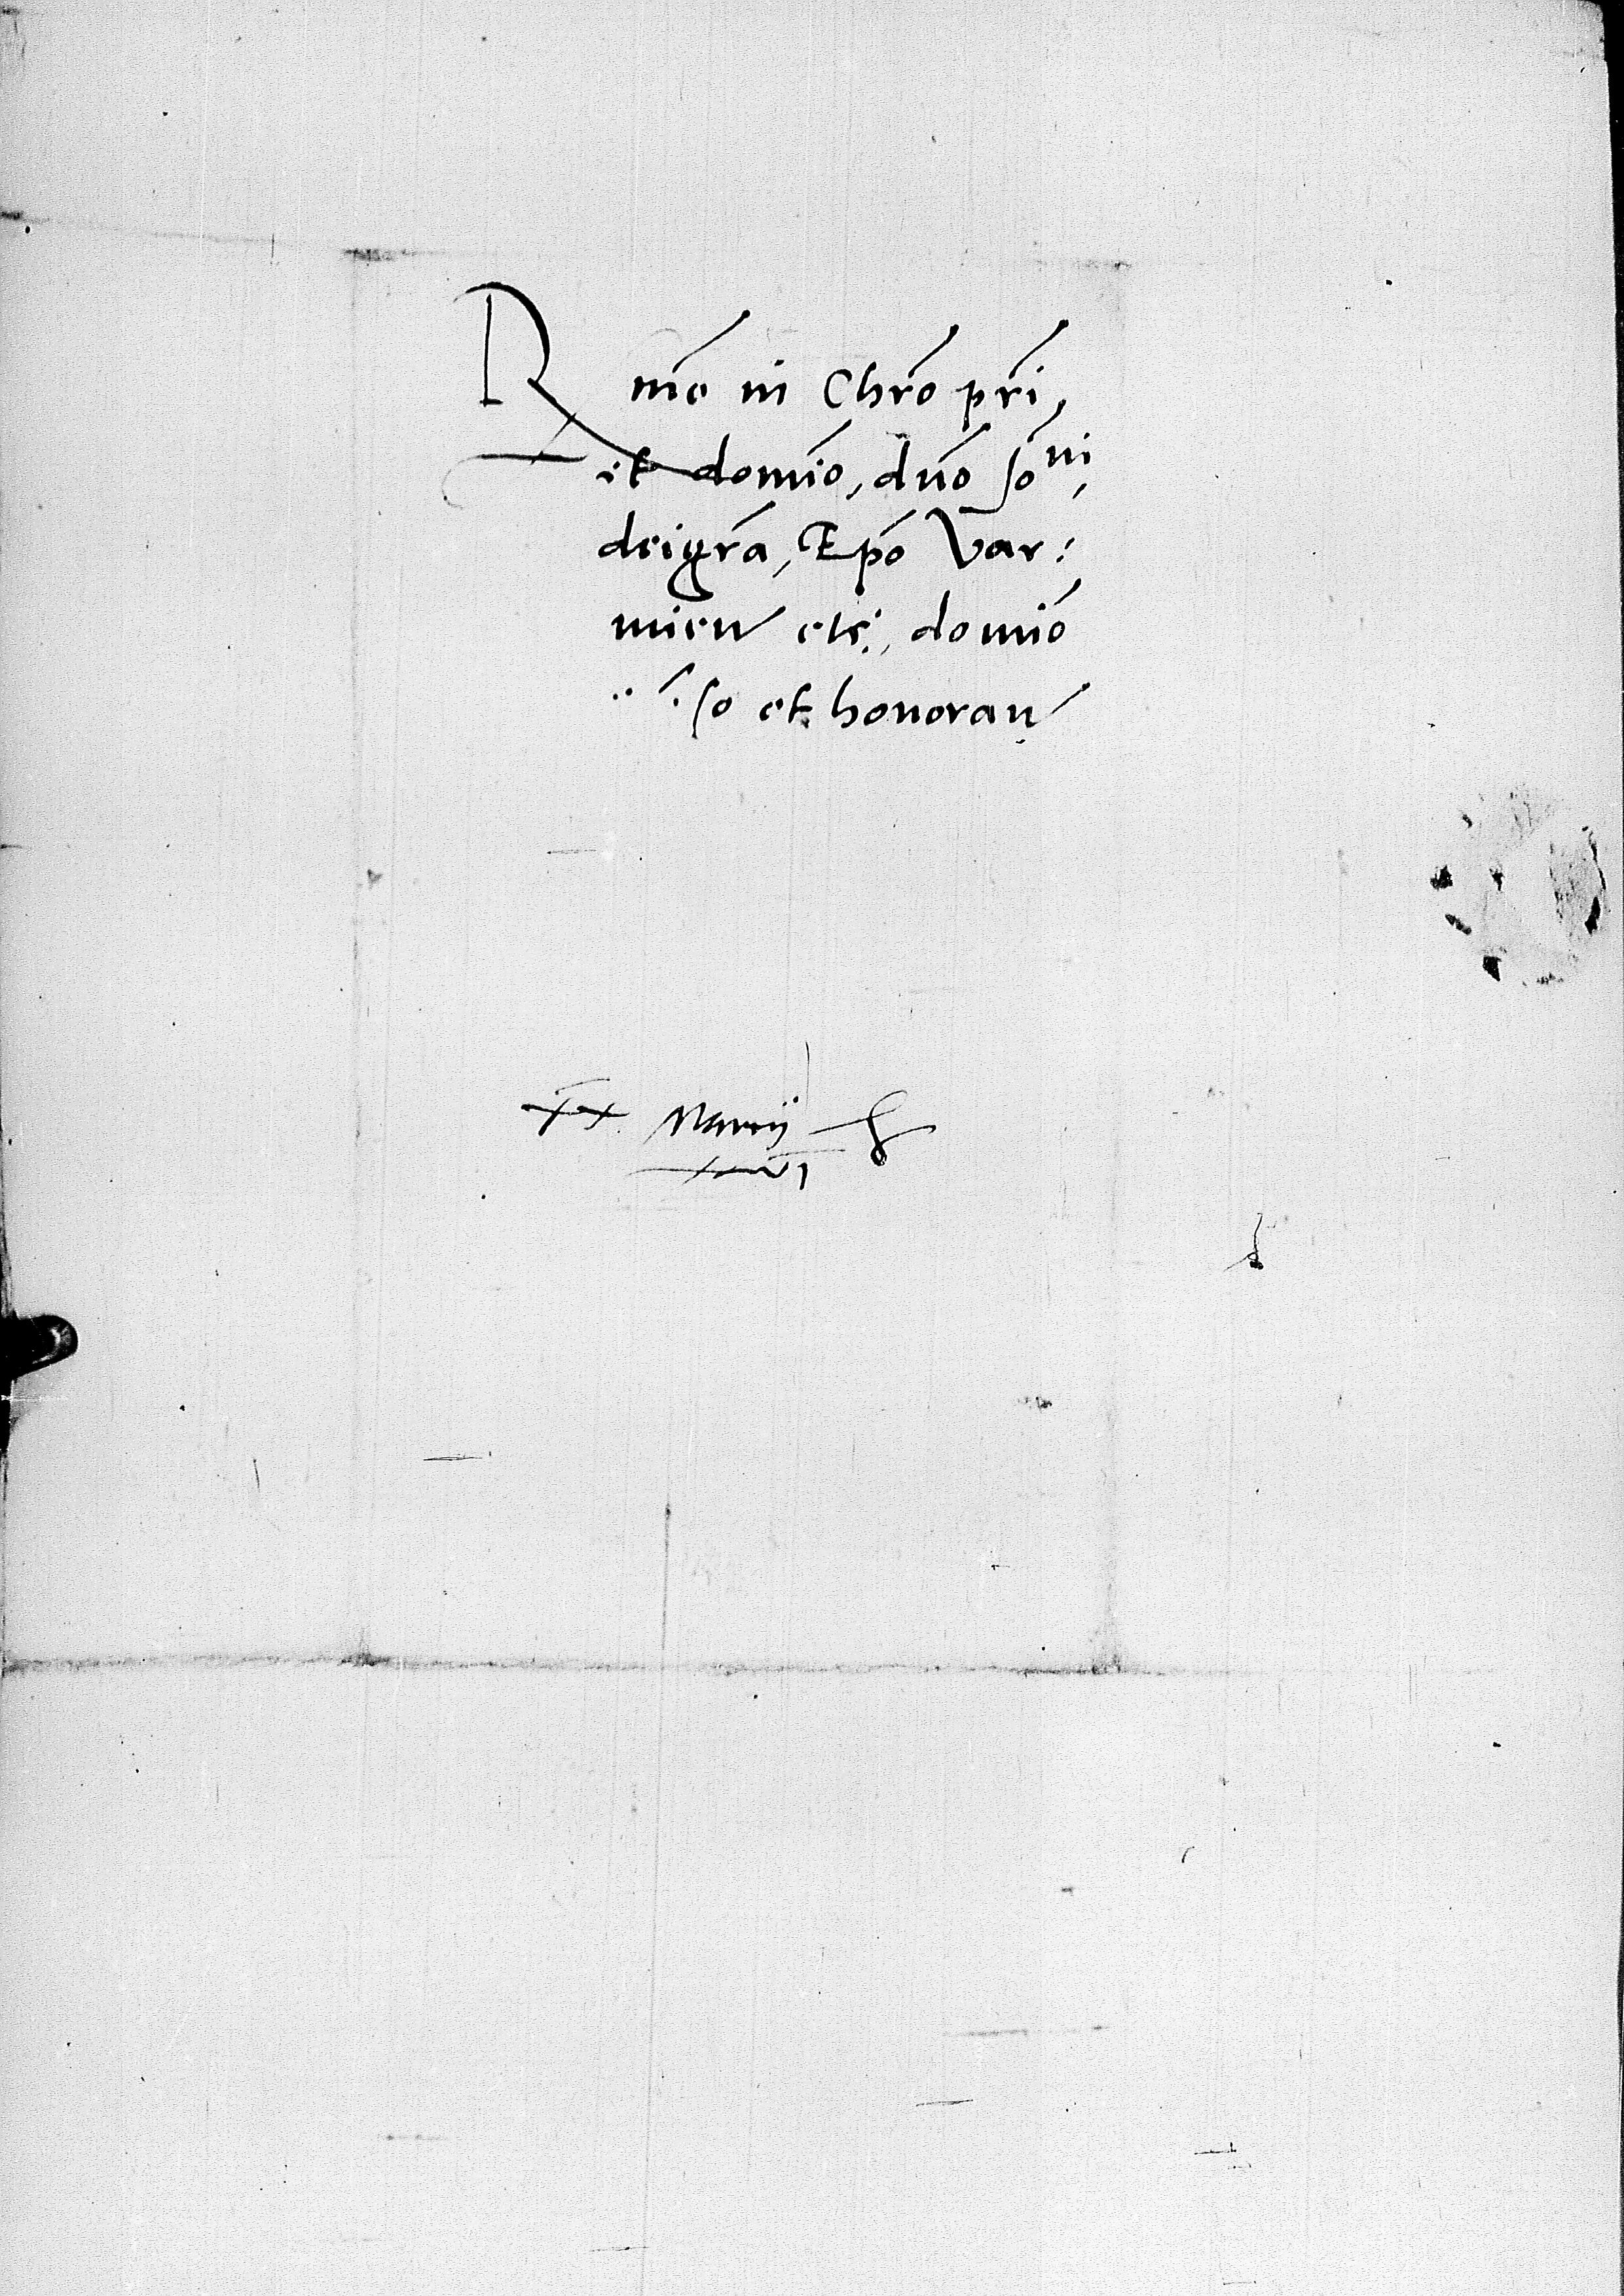 Rmo in Chro pri,
et domio, dno Jo ni,
dei gra, Epo Var:
mien etc, domio
so et honoran
xx Marcij
xxvi